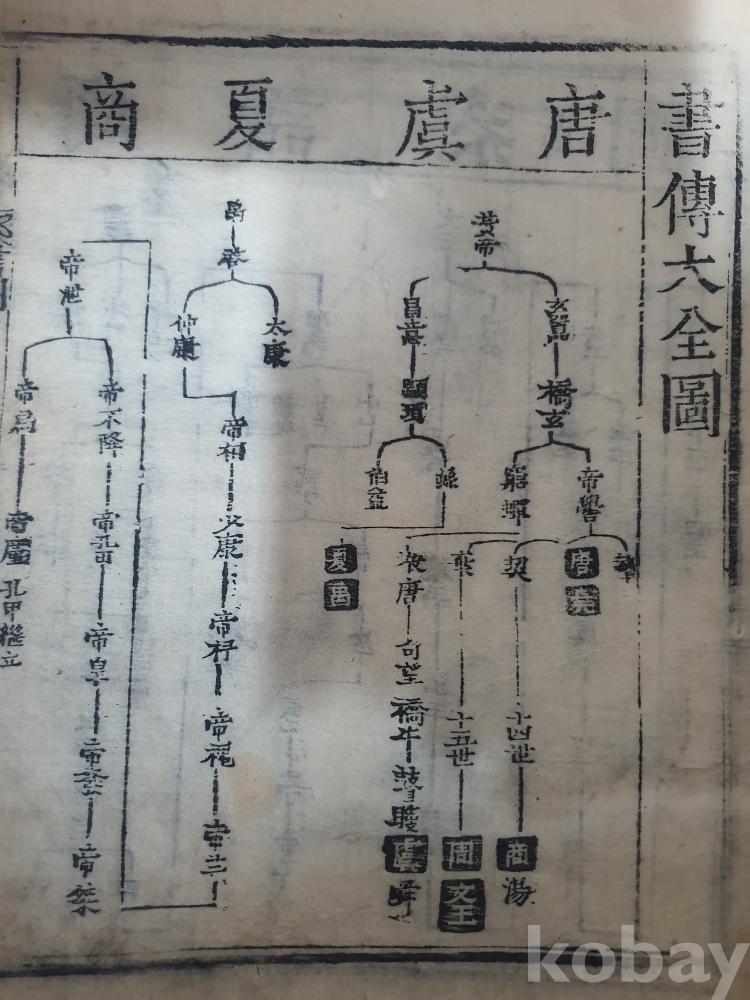 書傳大全圖
唐虞夏商
黃帝
玄囂
橋玄
帝嚳
摯
唐堯
契
十四世
商湯
棄
十五世
周文王
窮蟬
敬唐
句望
橋牛
瞽瞍
虞舜
昌意
顓頊
鯀
夏禹
伯益
禹
啓
太康
仲康
帝相
少康
帝杼
帝槐
帝芒
帝泄
帝不降
帝孔甲
帝皐
帝發
帝桀
帝扃
帝廑
孔甲繼立
kobay